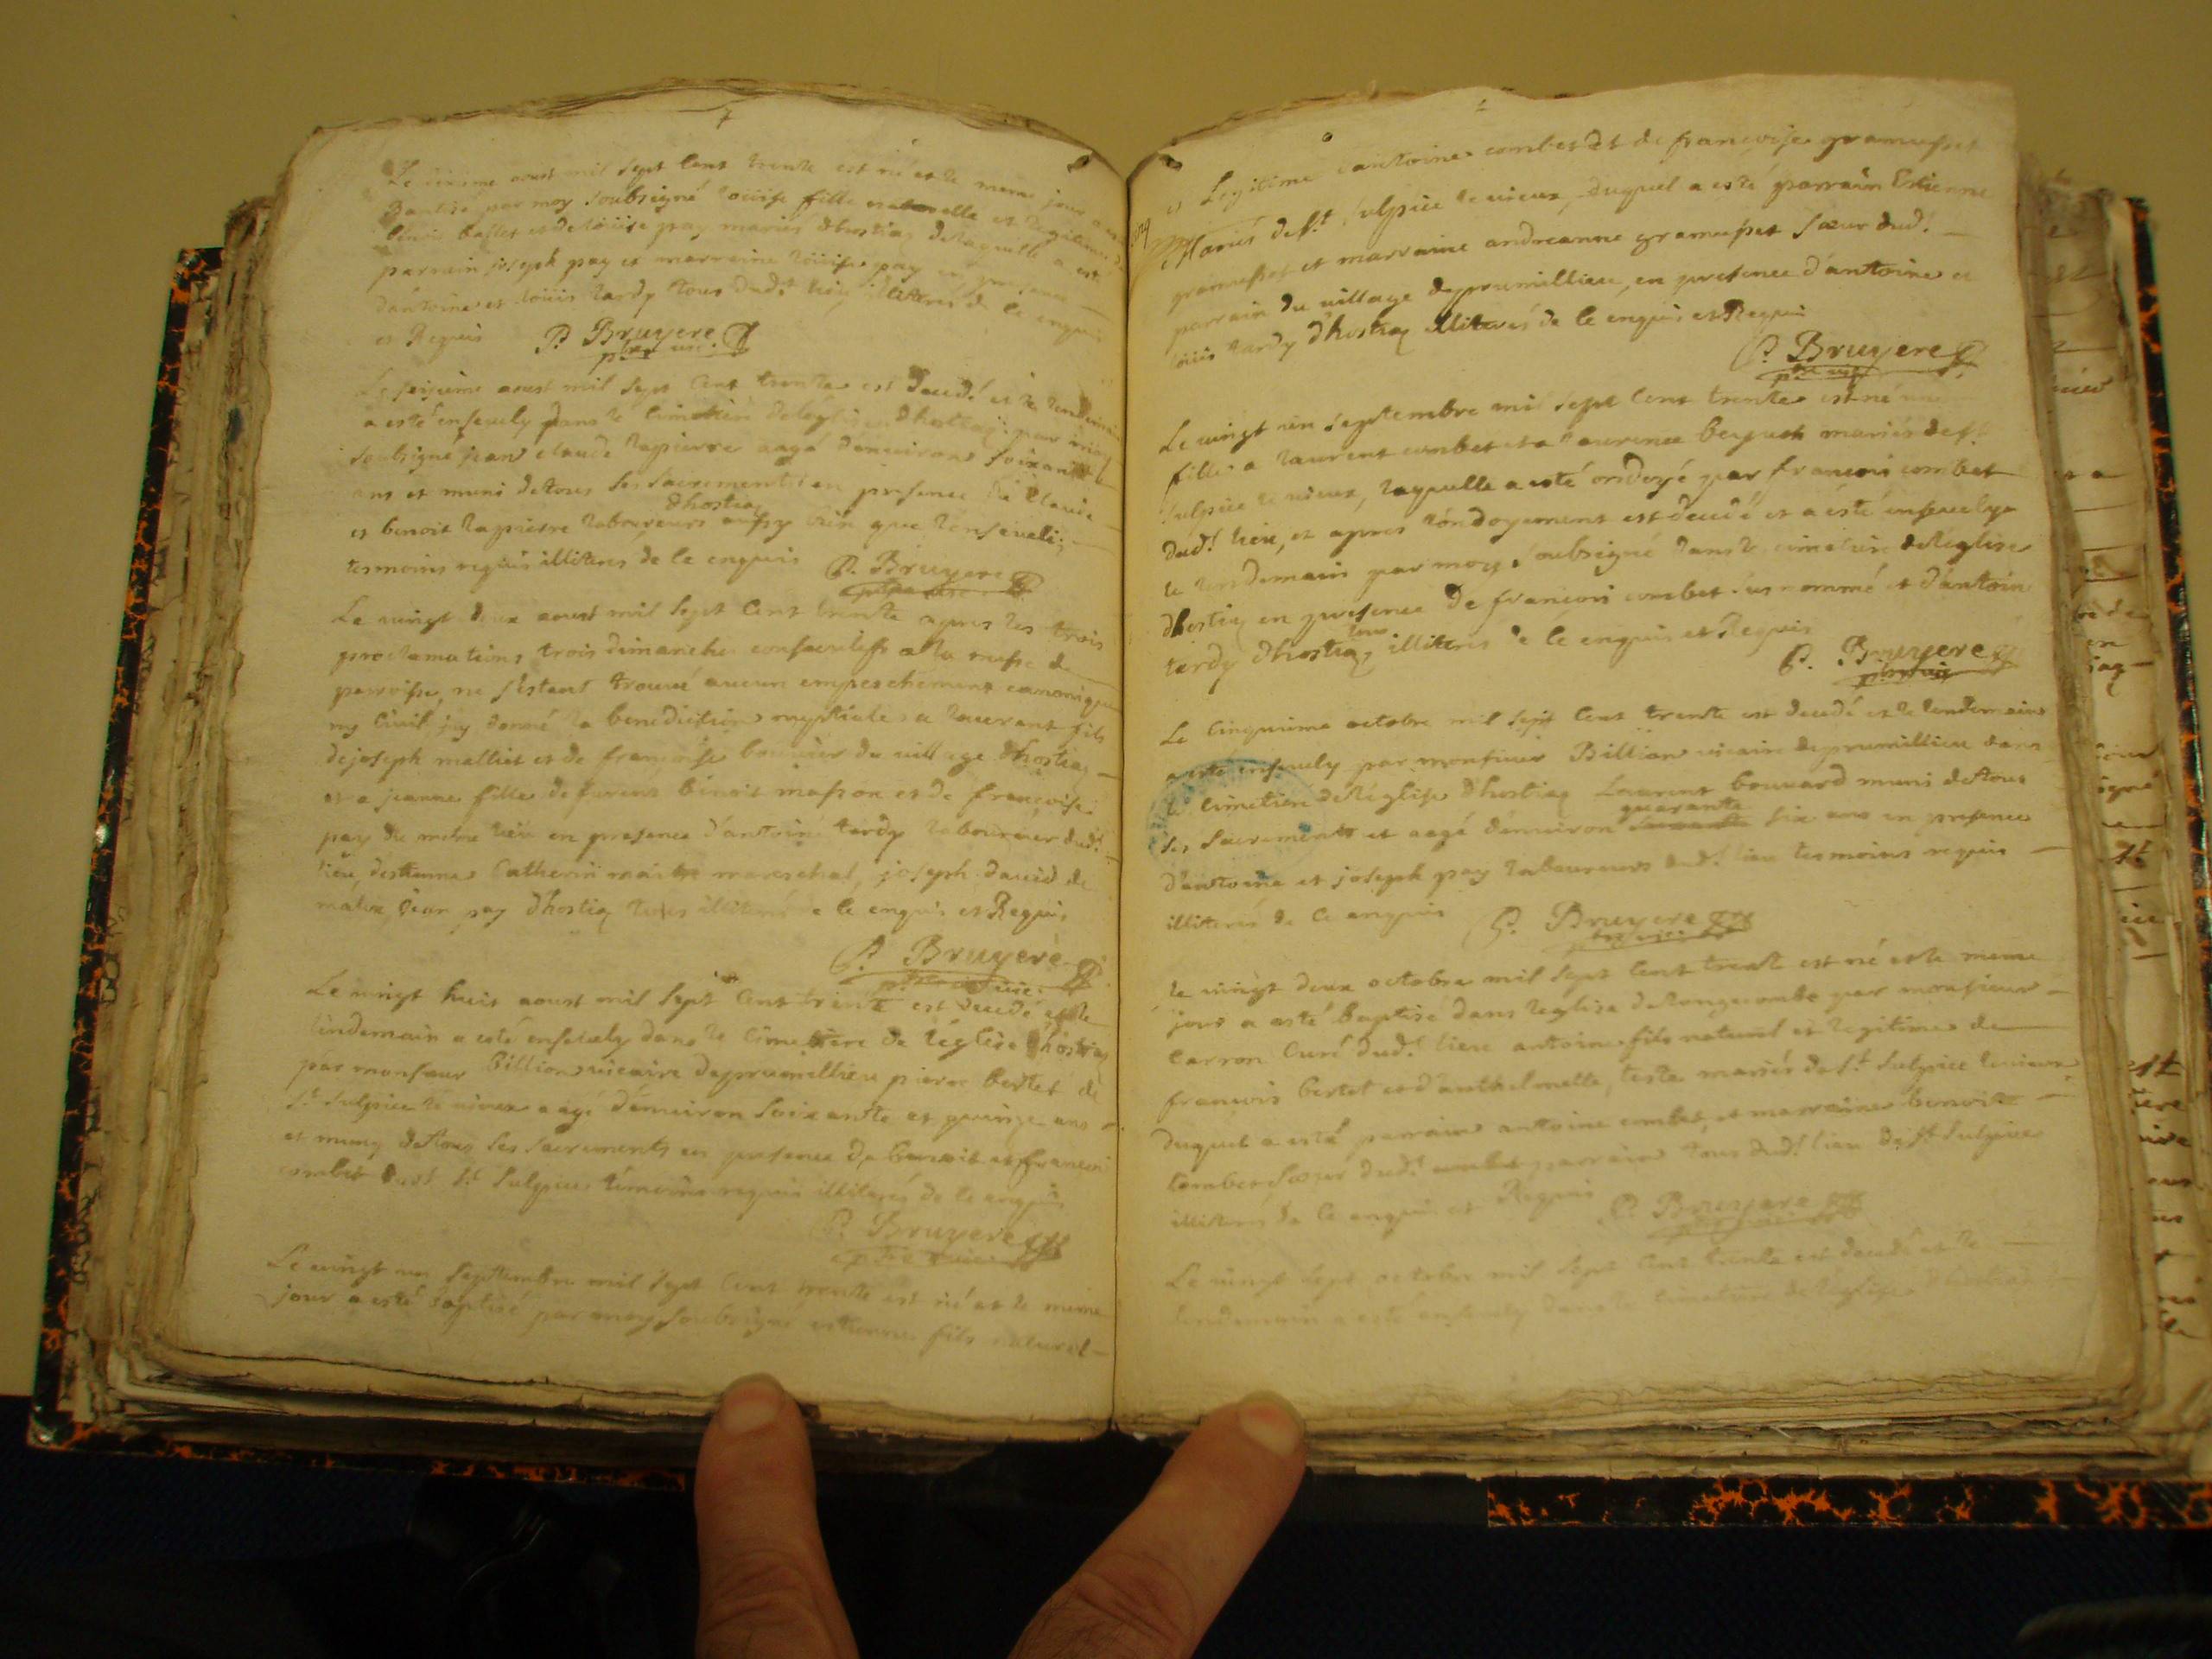 aoust mil sept Cent trente est né et le meme jour a
par moy soubsigné loüise fille naturelle et legitime
benoit et de loüise pay mariés dhostiaz de laquelle a esté
parrain joseph pay et marraine loüise pay en presence
dantoine et loüis tardy tous dud.t lieu illiterés de ce enquis
et Requis P. Bruyere
Le seizieme aoust mil sept Cent trente est decedé et le lendemain
a esté ensevely dans le cimetiere de leglise dhostiaz par moy
soubsigné jean claude lapierre aagé denviron soixante
ans et muni de tous ses sacrements en presence de Claude
dhostiaz
et benoit lapierre laboureurs
tesmoins requis illiteres de ce enquis P. Bruyere
Le vingt deux aoust mil sept Cent trente apres les trois
proclamations trois dimanches a la messe de
parroisse, ne s'estant trouvé aucun empeschement canonique
ny Civil j'ay donné la benediction a laurant fils
de joseph malliet et de françoise du village dhostiaz
et a jeanne fille de benoit masson et de françoise
pay du meme lieu en presence d'antoine tardy laboureur dud.t
lieu, destienne Catherin mareschal, joseph david de
jean pay dhostiaz illiterés de ce enquis et Requis
P. Bruyere
Le vingt huit aoust mil sept Cent trente est decedé et le
lendemain a esté ensevely dans le Cimetiere de l'église dhostiaz
par monsieur Billion vicaire de prumillieu pierre bertet de
s.t sulpice le vieux aagé d'environ soixante et quinze ans
et muny de tous ses sacrements en presence de benoit et françois
combet dud.t s.t sulpice témoins requis illiterés de ce enquis
P. Bruyere
Le vingt un septembre mil sept Cent trente est né et le meme
jour a esté baptisé par moy soubsigné estienne fils naturel
et Legitime d'antoine combet et de françoise gramusset
Mariés de s.t sulpice le vieux, duquel a esté parrain Estienne
gramusset et marraine andreanne gramusset sœur dud.t
parrain du village de prumillieu, en presence d'antoine et
loüis tardy d'hostiaz illiterés de ce enquis et Requis
P. Bruyere
Le vingt un septembre mil sept Cent trente est né une
fille a laurent combet et a laurence mariés de s.t
sulpice le vieux, laquelle a esté ondoyé par françois combet
dud.t lieu, et apres l'ondoyement est decedé et a esté ensevelye
le lendemain par moy soubsigné dans le cimetiere de l'église
dhostiaz en presence de françois combet sus nommé et d'antoine
tous
tardy dhostiaz illiterés de ce enquis et Requis
P. Bruyere
Le Cinquieme octobre mil sept Cent trente est decedé et le lendemain
a esté ensevely par monsieur Billion vicaire de prumillieu dans
le Cimetiere de l'église dhostiaz Laurent bouvard muni de tous
quarante
ses sacrements et aagé d'environ six ans en presence
d'antoine et joseph pay laboureurs dud.t lieu tesmoins requis
illiterés de ce enquis P. Bruyere
le vingt deux octobre mil sept Cent trente est né et le meme
jour a esté baptisé dans l'église de longecombe par monsieur
Carron Curé dud.t lieu antoine fils naturel et legitime de
françois bertet et d'anthelmette teste mariés de s.t sulpice le vieux
duquel a esté parrain antoine combet, et marraine benoite
Combet sœur dud.t parrain tous dud.t lieu de s.t sulpice
illiterés de ce enquis et Requis P. Bruyere
Le vingt sept octobre mil sept Cent trente est decedé et le
lendemain a esté ensevely dans le Cimetiere de l'église dhostiaz